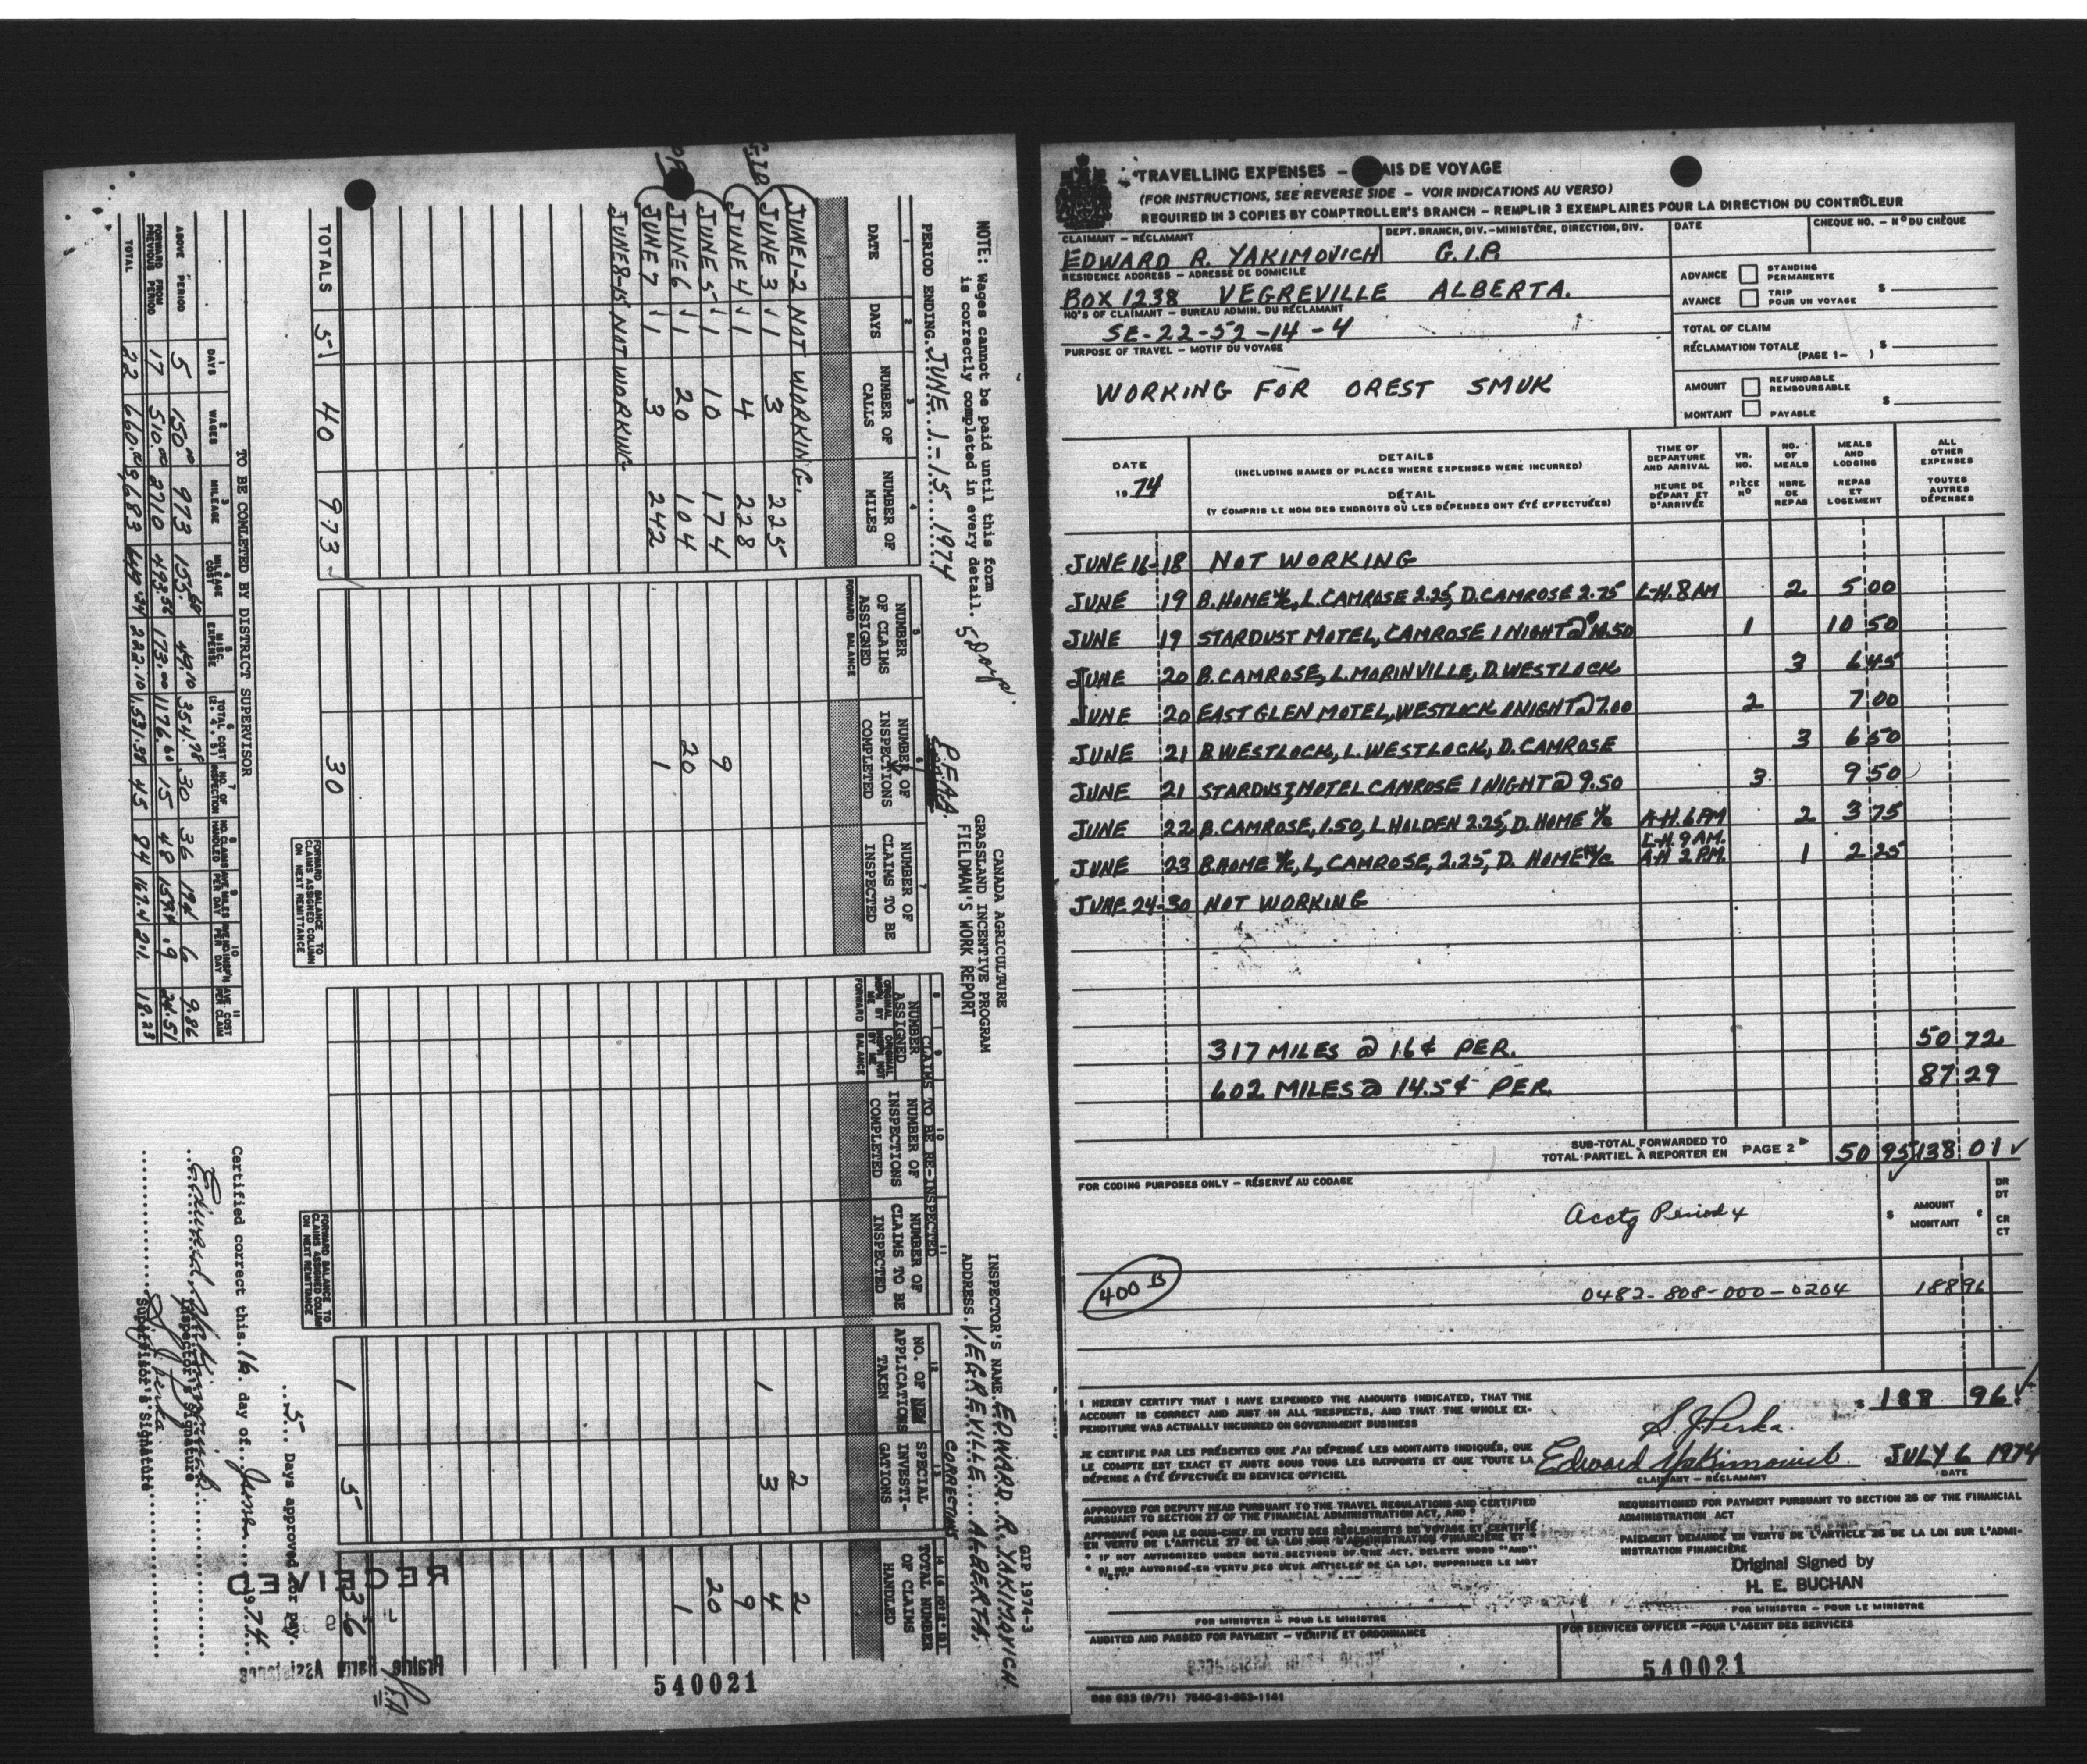 NOTE: Wages cannot be paid until this form
is correctly completed in every detail. 5 Days.
PERIOD ENDING. JUNE 1-15 1974
P.F.A.A.
CANADA AGRICULTURE
GRASSLAND INCENTIVE PROGRAM
FIELDMAN'S WORK REPORT
GIP 1974-3
INSPECTOR'S NAME. EDWARD R. YAKIMOVICH
ADDRESS. VEGREVILLE.... ALBERTA.
CLAIMS TO BE RE-INSPECTED
CORRECTIONS
1 DATE
2 DAYS
3 NUMBER OF CALLS
4 NUMBER OF MILES
5 NUMBER OF CLAIMS ASSIGNED FORWARD BALANCE
6 NUMBER OF INSPECTIONS COMPLETED
7 NUMBER OF CLAIMS TO BE INSPECTED
8 NUMBER ASSIGNED ORIGINAL INSPN BY ME FORWARD
9 ORIGINAL INSPN NOT BY ME BALANCE
10 NUMBER OF INSPECTIONS COMPLETED
11 NUMBER OF CLAIMS TO BE INSPECTED
12 NO. OF NEW APPLICATIONS TAKEN
13 SPECIAL INVESTI-GATIONS
14 TOTAL NUMBER OF CLAIMS HANDLED
JUNE 1-2 NOT WORKING. 2 2
JUNE 3 1 3 225 1 3 4
JUNE 4 1 4 228 9
JUNE 5 1 10 174 9 20
JUNE 6 1 20 104 20 1
JUNE 7 1 3 242 1
JUNE 8-15 NOT WORKING
TOTALS 5 40 973 30 1 5 36
FORWARD BALANCE TO CLAIMS ASSIGNED COLUMN ON NEXT REMITTANCE
FORWARD BALANCE TO CLAIMS ASSIGNED COLUMN ON NEXT REMITTANCE
TO BE COMPLETED BY DISTRICT SUPERVISOR
1 DAYS
2 WAGES
3 MILEAGE
4 MILEAGE COST
5 MISC. EXPENSE
6 TOTAL COST (2, 4, 5)
7 NO. OF INSPECTION
8 NO. CLAIMS HANDLED
9 AVE MILES PER DAY
10 AVE NO. INSP'N PER DAY
11 AVE. COST PER CLAIM
ABOVE PERIOD 5 150.00 973 155.68 49.10 354.78 30 36 194 6 9.86
FORWARD FROM PREVIOUS PERIOD 17 510.00 2710 493.56 173.00 1176.60 15 48 159.4 .9 24.51
TOTAL 22 660.00 3,683 649.24 222.10 1,531.38 45 84 167.4 2.1 18.23
...5.. Days approved for pay.
Certified correct this. 16. day of... June... 1974
Edward Yakimovich
Inspector's Signature
S. J. Perka
Supervisor's Signature
RECEIVED
Prairie Farm Assistance
540021
TRAVELLING EXPENSES – AIS DE VOYAGE
(FOR INSTRUCTIONS, SEE REVERSE SIDE – VOIR INDICATIONS AU VERSO)
REQUIRED IN 3 COPIES BY COMPTROLLER'S BRANCH – REMPLIR 3 EXEMPLAIRES POUR LA DIRECTION DU CONTRÔLEUR
CLAIMANT – RÉCLAMANT
EDWARD R. YAKIMOVICH
DEPT. BRANCH, DIV.–MINISTÈRE, DIRECTION, DIV.
G.I.P.
DATE
CHEQUE NO. – Nº DU CHÈQUE
RESIDENCE ADDRESS – ADRESSE DE DOMICILE
BOX 1238 VEGREVILLE ALBERTA.
HQ'S OF CLAIMANT – BUREAU ADMIN. DU RÉCLAMANT
SE-22-52-14-4
PURPOSE OF TRAVEL – MOTIF DU VOYAGE
WORKING FOR OREST SMUK
ADVANCE STANDING PERMANENTE
AVANCE TRIP POUR UN VOYAGE $
TOTAL OF CLAIM
RÉCLAMATION TOTALE (PAGE 1– ) $
AMOUNT REFUNDABLE REMBOURSABLE
MONTANT PAYABLE $
DATE 1974
DETAILS
(INCLUDING NAMES OF PLACES WHERE EXPENSES WERE INCURRED)
DÉTAIL
(Y COMPRIS LE NOM DES ENDROITS OÙ LES DÉPENSES ONT ÉTÉ EFFECTUÉES)
TIME OF DEPARTURE AND ARRIVAL HEURE DE DÉPART ET D'ARRIVÉE
VR. NO. PIÈCE Nº
NO. OF MEALS NBRE DE REPAS
MEALS AND LODGING REPAS ET LOGEMENT
ALL OTHER EXPENSES TOUTES AUTRES DÉPENSES
JUNE 16-18 NOT WORKING
JUNE 19 B. HOME N/C, L. CAMROSE 2.25, D. CAMROSE 2.75 L-H. 8 AM 2 5 00
JUNE 19 STARDUST MOTEL, CAMROSE 1 NIGHT @ 10.50 1 10 50
JUNE 20 B. CAMROSE, L. MORINVILLE, D. WESTLOCK 3 6 45
JUNE 20 EAST GLEN MOTEL, WESTLOCK 1 NIGHT @ 7.00 2 7 00
JUNE 21 B. WESTLOCK, L. WESTLOCK, D. CAMROSE 3 6 50
JUNE 21 STARDUST MOTEL CAMROSE 1 NIGHT @ 9.50 3 9 50
JUNE 22 B. CAMROSE, 1.50, L. HOLDEN 2.25, D. HOME N/C A-H. 6 PM 2 3 75
JUNE 23 B. HOME N/C, L, CAMROSE, 2.25, D. HOME N/C L-H. 9 AM. A-H 2 PM. 1 2 25
JUNE 24-30 NOT WORKING
317 MILES @ 16¢ PER. 50 72
602 MILES @ 14.5¢ PER. 87 29
SUB-TOTAL FORWARDED TO
TOTAL PARTIEL À REPORTER EN PAGE 2 50 95 138 01
FOR CODING PURPOSES ONLY – RÉSERVÉ AU CODAGE
Acctg Period 4
$ AMOUNT MONTANT ¢
DR DT CR CT
400 B
0482-808-000-0204 188 96
$ 188 96
I HEREBY CERTIFY THAT I HAVE EXPENDED THE AMOUNTS INDICATED, THAT THE
ACCOUNT IS CORRECT AND JUST IN ALL RESPECTS, AND THAT THE WHOLE EX-
PENDITURE WAS ACTUALLY INCURRED ON GOVERNMENT BUSINESS
JE CERTIFIE PAR LES PRÉSENTES QUE J'AI DÉPENSÉ LES MONTANTS INDIQUÉS, QUE
LE COMPTE EST EXACT ET JUSTE SOUS TOUS LES RAPPORTS ET QUE TOUTE LA
DÉPENSE A ÉTÉ EFFECTUÉE EN SERVICE OFFICIEL
S. J. Perka.
Edward Yakimovich JULY 6 1974
CLAIMANT – RÉCLAMANT DATE
APPROVED FOR DEPUTY HEAD PURSUANT TO THE TRAVEL REGULATIONS AND CERTIFIED
PURSUANT TO SECTION 27 OF THE FINANCIAL ADMINISTRATION ACT, AND *
APPROUVÉ POUR LE SOUS-CHEF EN VERTU DES RÈGLEMENTS DE VOYAGE ET CERTIFIÉ
EN VERTU DE L'ARTICLE 27 DE LA LOI SUR L'ADMINISTRATION FINANCIÈRE ET *
* IF NOT AUTHORIZED UNDER BOTH SECTIONS OF THE ACT, DELETE WORD "AND"
* SI NON AUTORISÉ EN VERTU DES DEUX ARTICLES DE LA LOI, SUPPRIMER LE MOT "ET"
REQUISITIONED FOR PAYMENT PURSUANT TO SECTION 26 OF THE FINANCIAL
ADMINISTRATION ACT
PAIEMENT DEMANDÉ EN VERTU DE L'ARTICLE 26 DE LA LOI SUR L'ADMI-
NISTRATION FINANCIÈRE
Original Signed by
H. E. BUCHAN
FOR MINISTER – POUR LE MINISTRE
FOR MINISTER – POUR LE MINISTRE
AUDITED AND PASSED FOR PAYMENT – VÉRIFIÉ ET ORDONNANCÉ
FOR SERVICES OFFICER – POUR L'AGENT DES SERVICES
540021
DSS 533 (9/71) 7540-21-863-1141